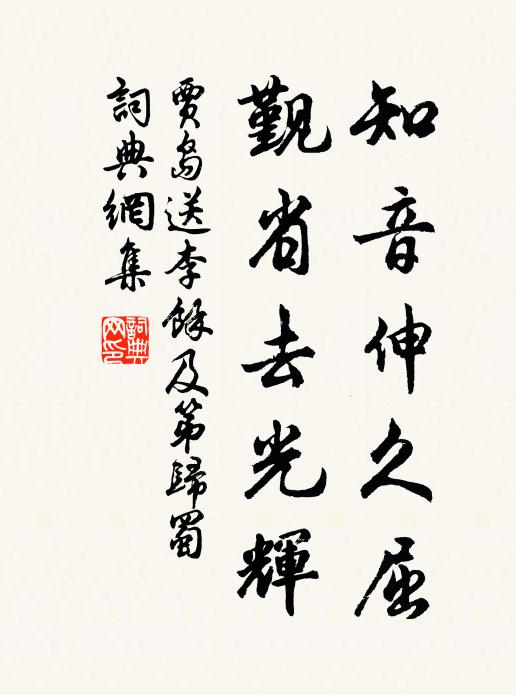 知音伸久屈
覲省去光輝
賈島送李餘及第歸蜀
詞典網集
詞典网印